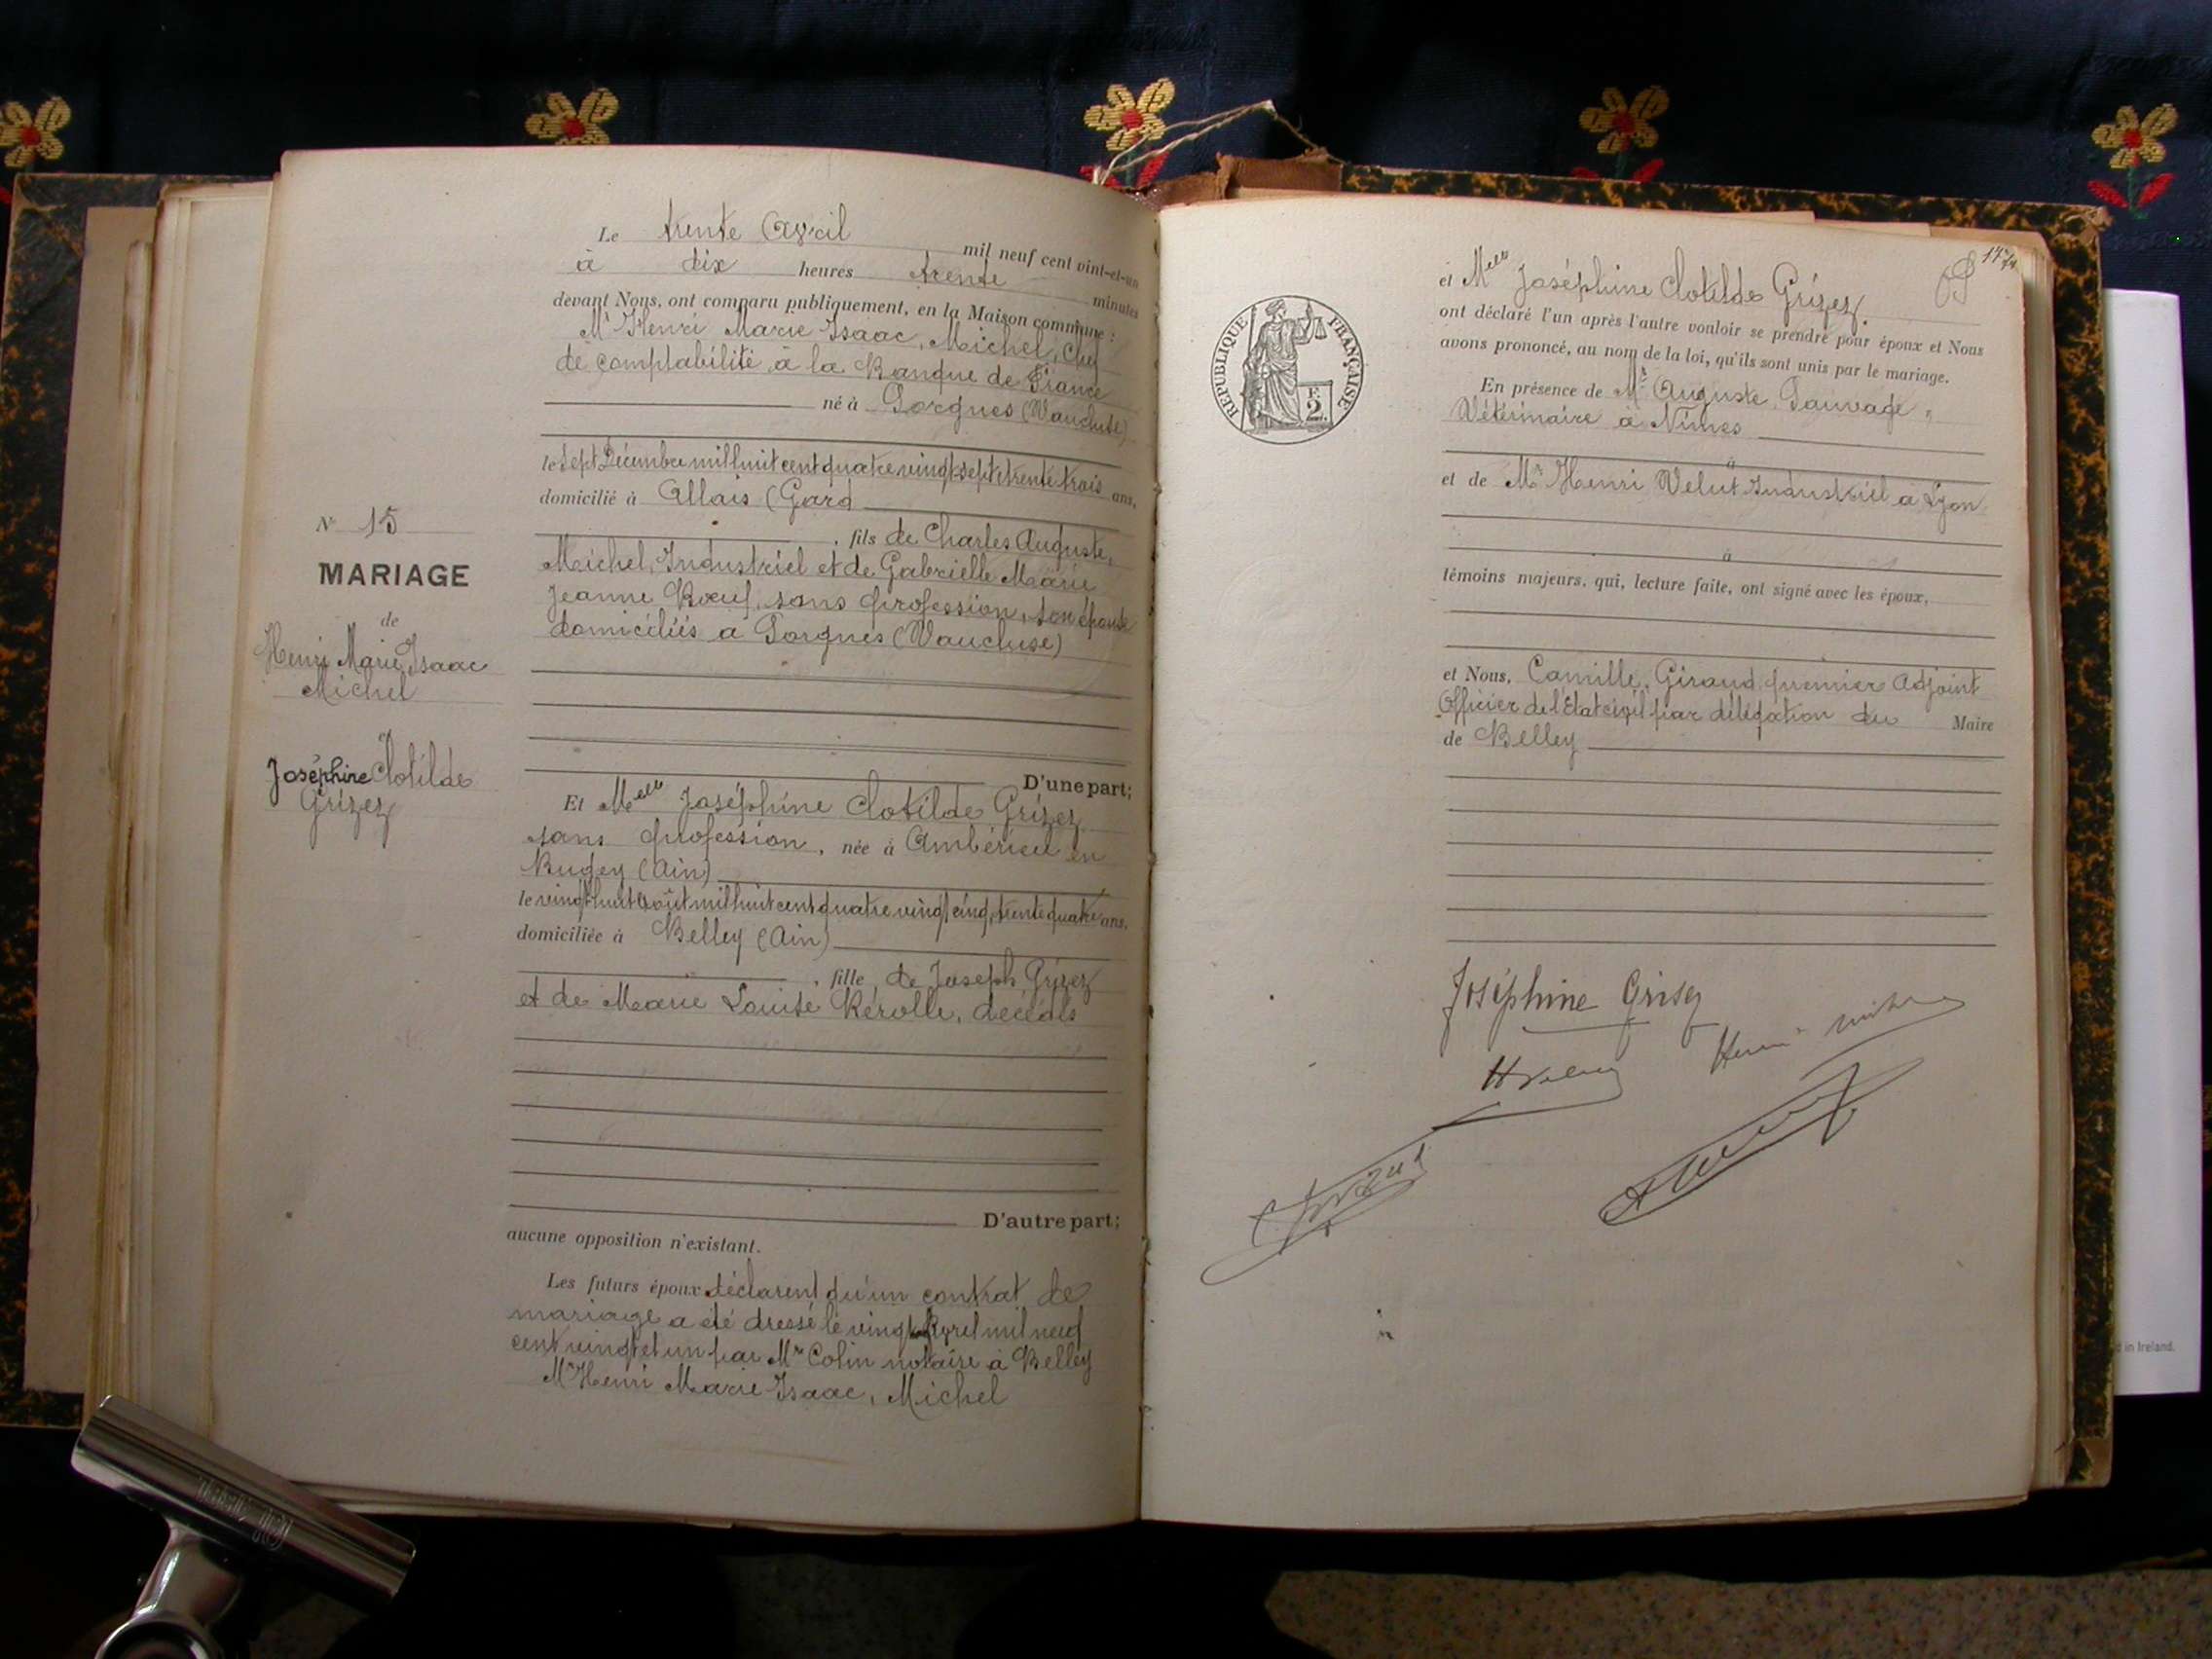 Le trente Avril mil neuf cent vint-et-un
à dix heures trente minutes
devant Nous, ont comparu publiquement, en la Maison commune :
Mr Henri Marie Isaac, Michel, Chef
de comptabilité à la Banque de France
né à Sorgues (Vaucluse)
le sept Décembre mil huit cent quatre vingt sept, trente trois ans,
domicilié à Allais (Gard
, fils de Charles Auguste,
Michel, Industriel et de Gabrielle Marie
Jeanne Bœuf, sans profession, son épouse
domiciliés a Sorgues (Vaucluse)
N° 15
MARIAGE
de
Henri Marie Isaac
Michel
et
Joséphine Clotilde
Grizez
D'une part;
Et Melle Joséphine Clotilde Grizez
sans profession, née à Ambérieu en
Bugey (Ain)
le vingt huit Août mil huit cent quatre vingt cinq, trente quatre ans,
domiciliée à Belley (Ain)
, fille de Joseph Grizez
et de Marie Louise Rérolle, décédés
D'autre part;
aucune opposition n'existant.
Les futurs époux déclarent qu'un contrat de
mariage a été dressé le vingt Avril mil neuf
cent vingt et un par Me Colin notaire à Belley
Mr Henri Marie Isaac, Michel
RÉPUBLIQUE FRANÇAISE
F.
2.
et Melle Joséphine Clotilde Grizez
ont déclaré l'un après l'autre vouloir se prendre pour époux et Nous
avons prononcé, au nom de la loi, qu'ils sont unis par le mariage.
En présence de Mr Auguste Sauvage
Vétérinaire à Nîmes
à
et de Mr Henri Velut Industriel a Lyon
à
témoins majeurs, qui, lecture faite, ont signé avec les époux,
et Nous, Camille, Giraud premier Adjoint
Officier de l'Etat civil par délégation du Maire
de Belley
Joséphine Grisez
Henri
in Ireland.